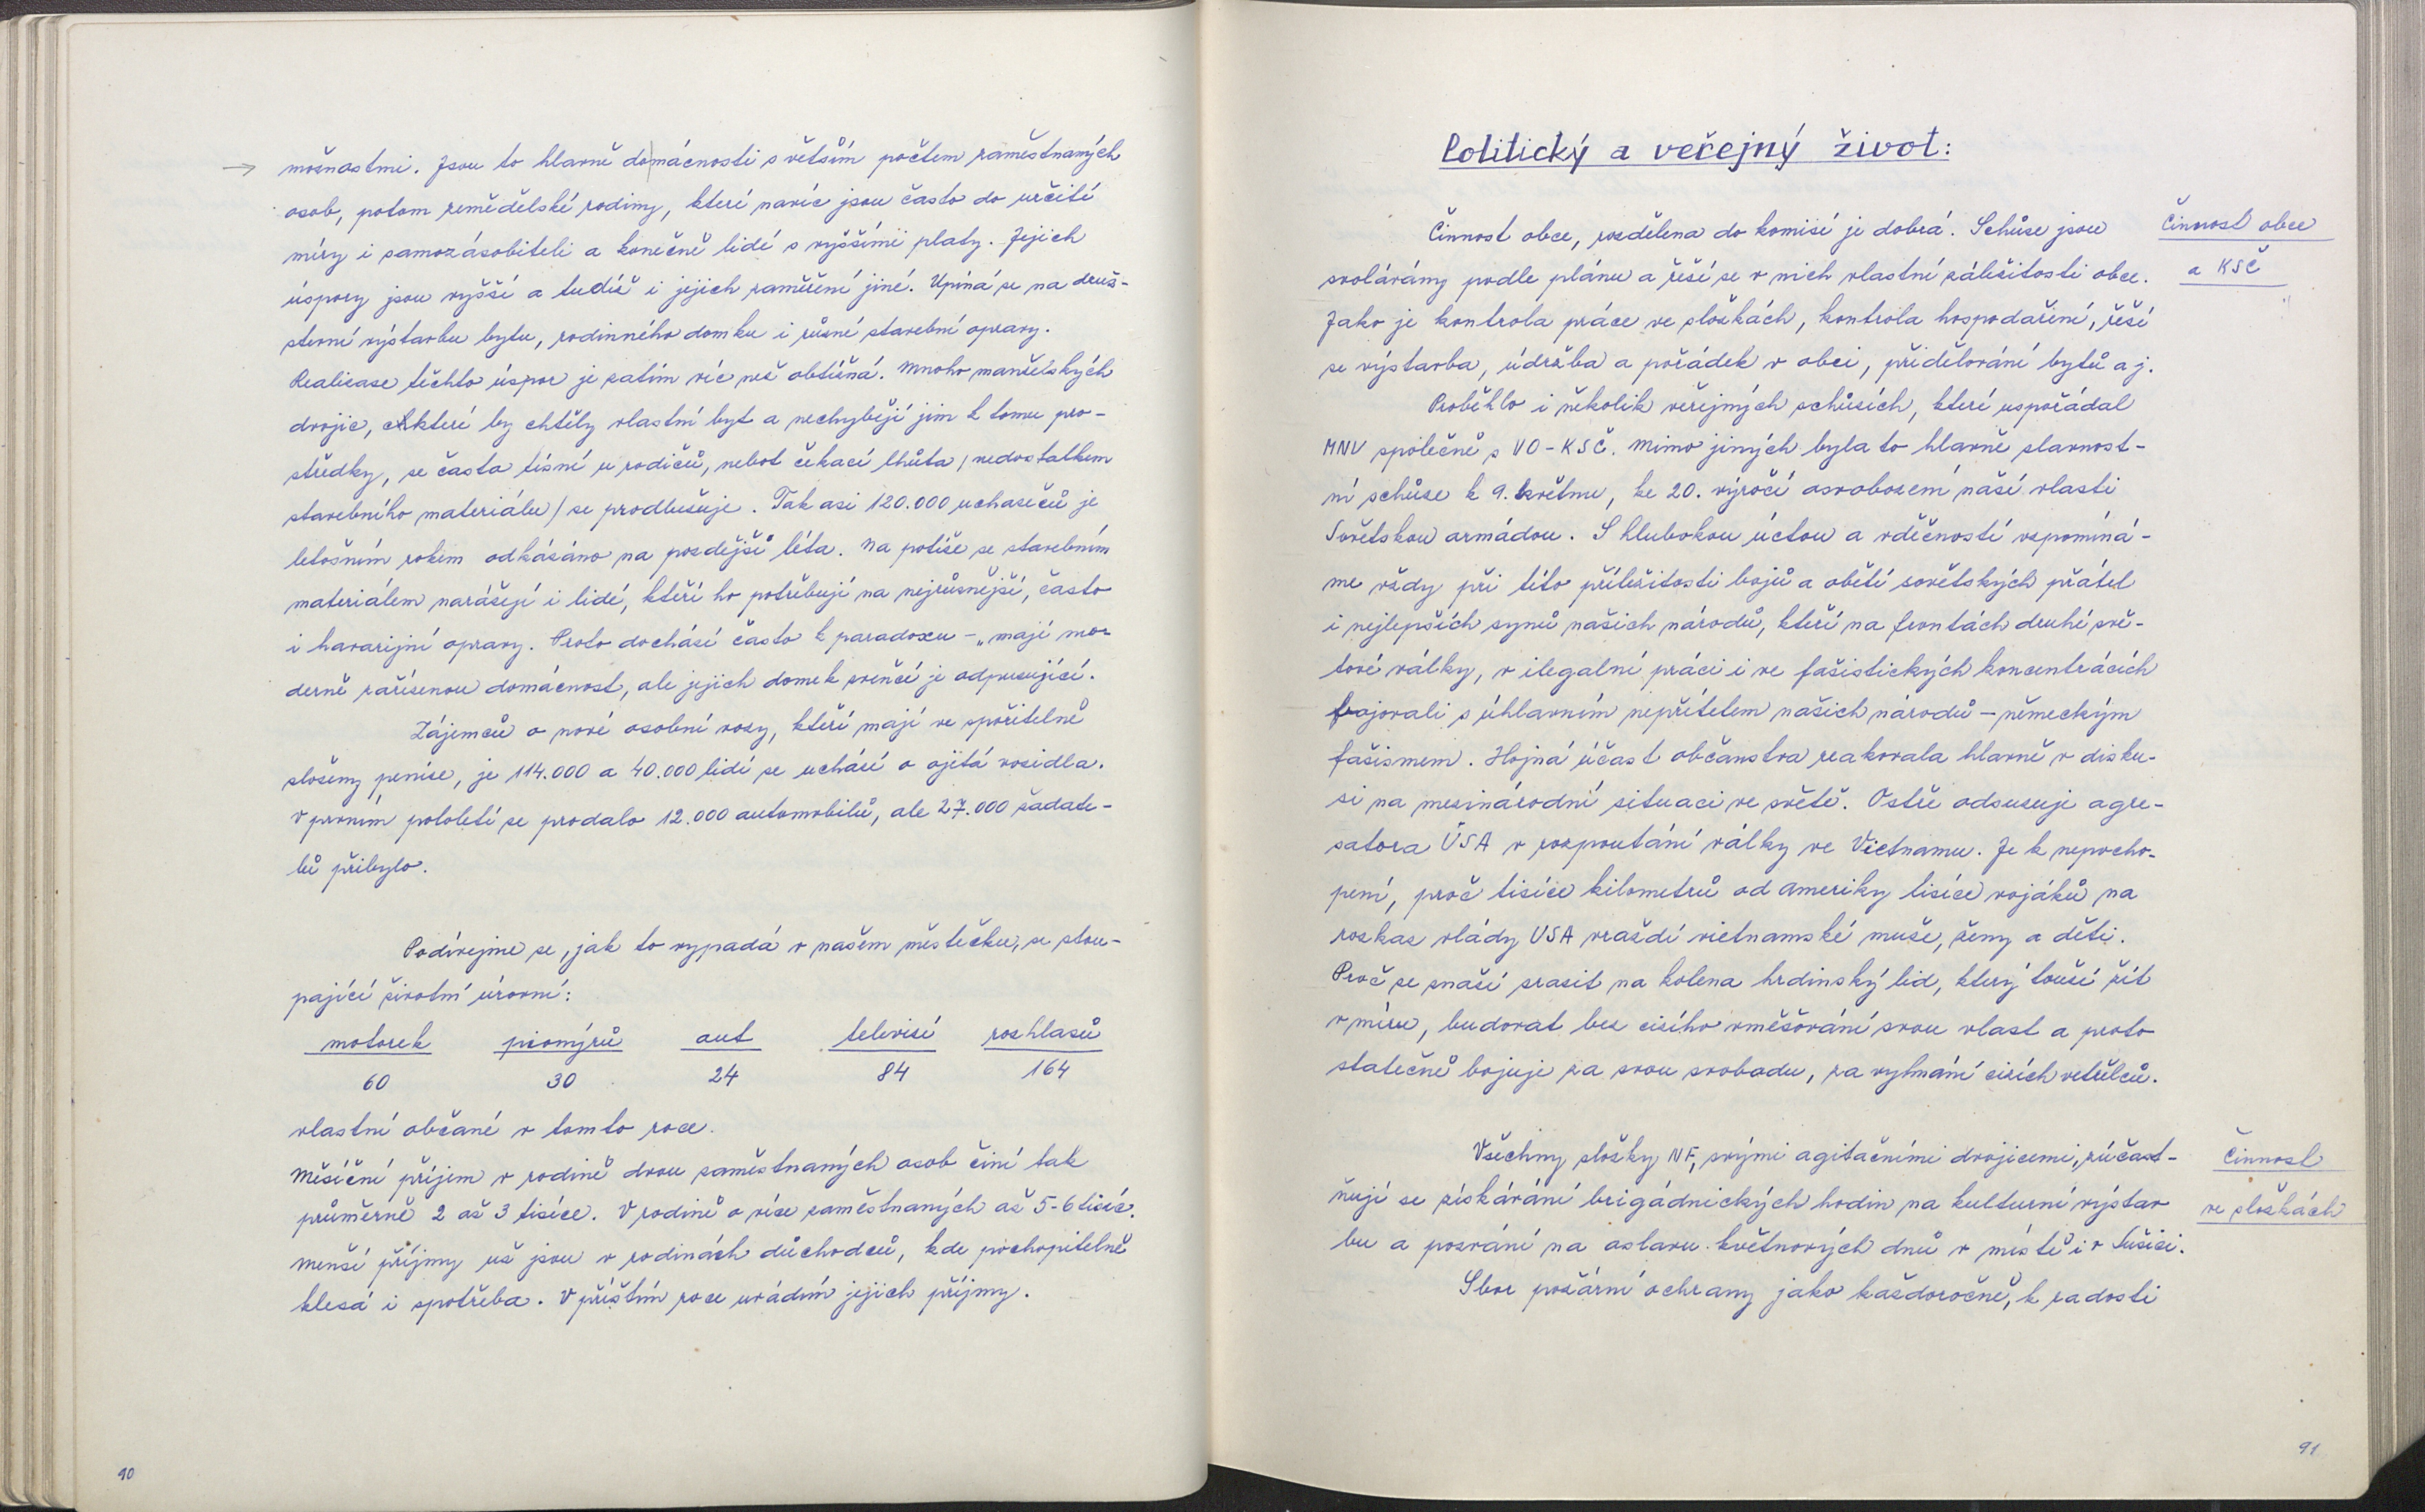 možnostmi. Jsou to hlavně domácnosti s větším počtem zaměstnaných
osob, potom zemědělské rodiny, které navíc jsou často do určité
míry i samozásobiteli a konečně lidé s vyššími platy. Jejich
úspory jsou vyšší a tudíž i jejich zaměření jiné. Upíná se na druž-
stevní výstavbu bytu, rodinného domku i různé stavební opravy.
Realisace těchto úspor je zatím víc než obtížná. Mnoho manželských
dvojic, které by chtěly vlastní byt a nechybějí jim k tomu pro-
středky, se často tísní u rodičů, nebot čekací lhůta /nedostatkem
stavebního materiálu/ se prodlužuje. Tak asi 120.000 uchazečů je
letošním rokem odkázáno na pozdější léta. Na potíže se stavebním
materiálem narážejí i lidé, kteří ho potřebují na nejrůznější, často
i havarijní opravy. Proto dochází často k paradoxu - „mají mo-
derně zařízenou domácnost, ale jejich domek zvenčí je odpuzující.
Zájemců o nové osobní vozy, kteří mají ve spořitelně
složeny peníze, je 114.000 a 40.000 lidí se uchází o ojetá vozidla.
V prvním pololetí se prodalo 12.000 automobilů, ale 27.000 žadate-
lů přibylo.
Podívejme se, jak to vypadá v našem městečku, se stou-
pající životní úrovní:
motorek pionýrů aut televisí rozhlasů
60 30 24 84 164
vlastní občané v tomto roce.
Měsíční příjem v rodině dvou zaměstnaných osob činí tak
průměrně 2 až 3 tisíce. V rodině o více zaměstnaných až 5-6 tisíc.
Menší příjmy už jsou v rodinách důchodců, kde pochopitelně
klesá i spotřeba. V příštím roce uvádím jejich příjmy.
90
Politický a veřejný život:
Činnost obce, rozdělena do komisí je dobrá. Schůze jsou
svolávány podle plánu a řeší se v nich vlastní záležitosti obce.
Jako je kontrola práce ve složkách, kontrola hospodaření, řeší
se výstavba, údržba a pořádek v obci, přidělování bytů a j.
Činnost obce
a KSČ
Proběhlo i několik veřejných schůzích, které uspořádal
MNV společně s VO-KSČ. Mimo jiných byla to hlavně slavnost-
ní schůze k 9. květnu, ke 20. výročí osvobození naší vlasti
Sovětskou armádou. S hlubokou úctou a vděčností vzpomíná-
me vždy při této příležitosti bojů a obětí sovětských přátel
i nejlepších synů našich národů, kteří na frontách druhé svě-
tové války, v ilegalní práci i ve fašistických koncentrácích
bojovali s úhlavním nepřítelem našich národů - německým
fašismem. Hojná účast občanstva reakovala hlavně v disku-
si na mezinárodní situaci ve světě. Ostře odsuzuje agre-
satora ÚSA v rozpoutání války ve Vietnamu. Je k nepocho-
pení, proč tisíce kilometrů od Ameriky tisíce vojáků na
rozkaz vlády USA vraždí vietnamské muže, ženy a děti.
Proč se snaží srazit na kolena hrdinský lid, který touží žít
v míru, budovat bez cizího vměšování svou vlast a proto
statečně bojuje za svou svobodu, za vyhnání cizích vetřelců.
Všechny složky NF, svými agitačními dvojicemi, zúčast-
ňují se získávání brigádnických hodin na kulturní výstav
bu a pozvání na oslavu květnových dnů v místě i v Sušici.
Sbor požární ochrany jako každoročně, k radosti
Činnost
ve složkách
91